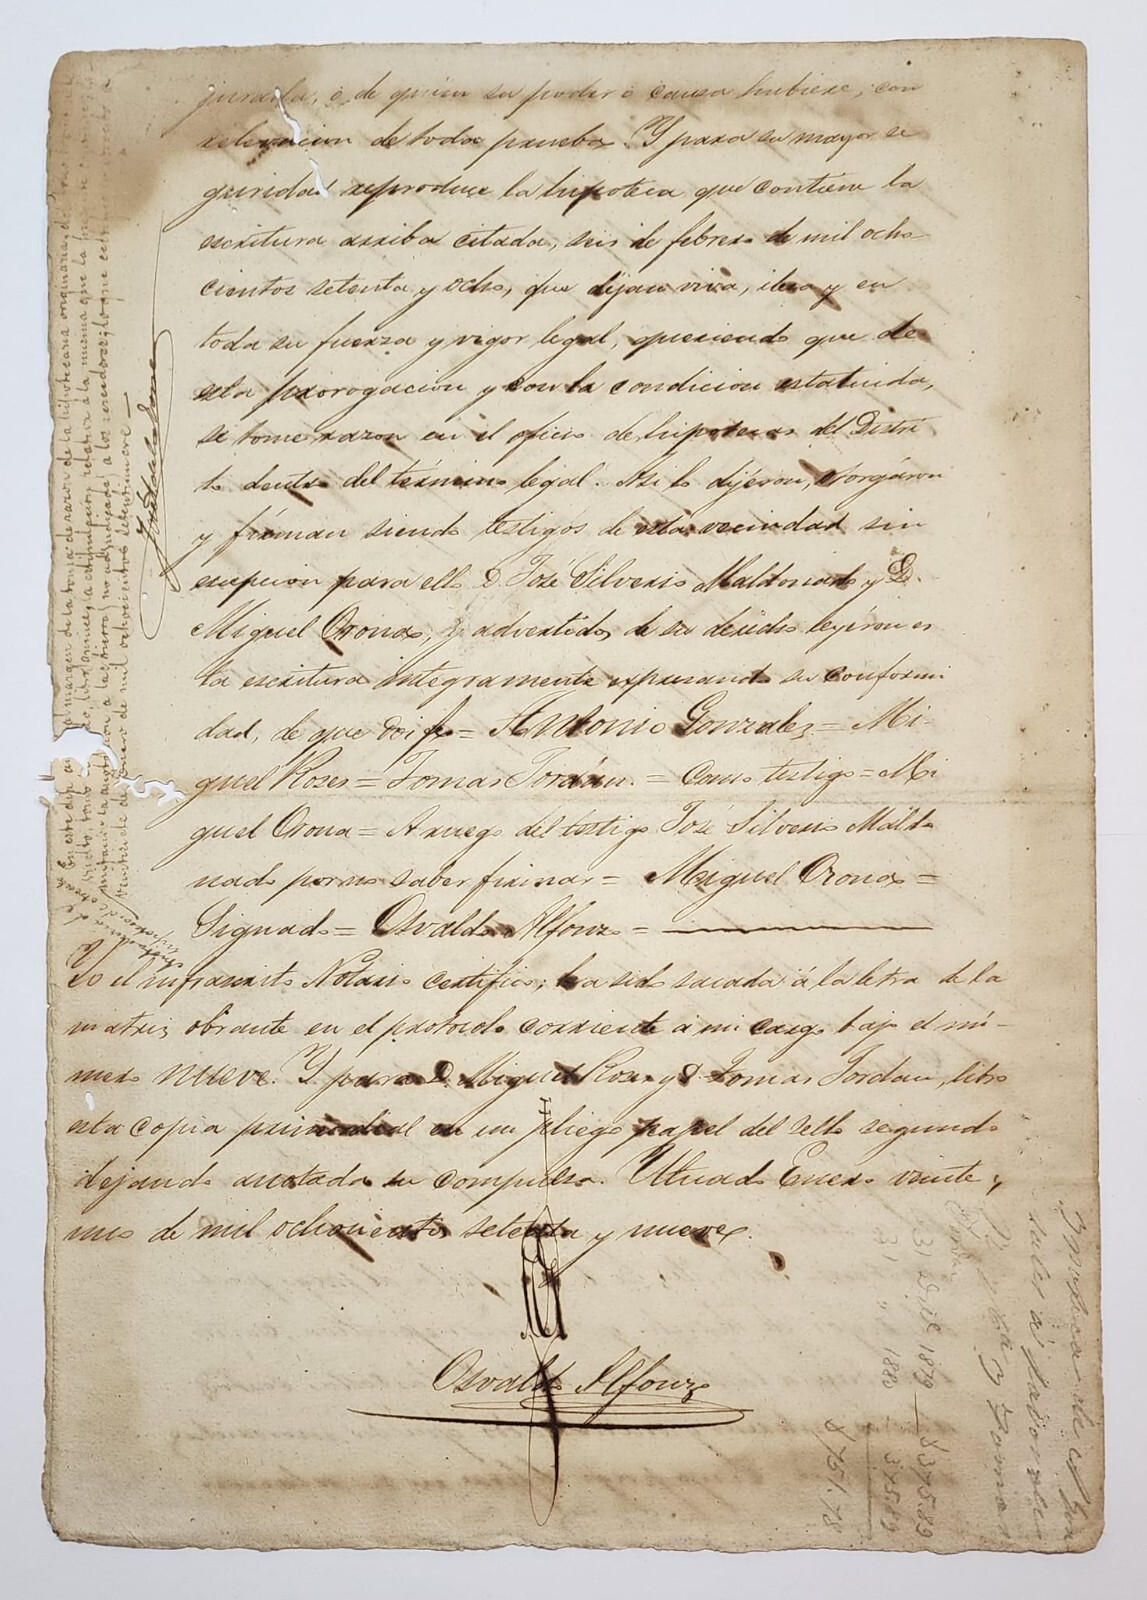 jurarla, ó de quien su poder ó causa hubiere, con
relevacion de toda prueba. Y para su mayor se
guridad reproduce la hipoteca que contiene la
escritura arriba citada, seis de febrero de mil ocho
cientos setenta y ocho, que dejan viva, ilesa y en
toda su fuerza y vigor legal, queriendo que de
esta prorogacion y con la condicion estatuida,
se tome razon en el oficio de hipotecas del Distri
to dentro del término legal. Asi lo dijéron, otorgáron
y firman siendo testigos de esta vecindad sin
escepcion para ello D. José Silverio Maldonado y D.
Miguel Orona, y advertidos de su derecho leyéron es
ta escritura integramente espresando su conformi
dad, de que doi fe = Antonio Gonzalez = Mi-
guel Roses = Tomas Jordán. = Como testigo = Mi
guel Orona = A ruego del testigo José Silverio Maldo
nado por no saber firmar = Miguel Orona =
Signado = Osvaldo Alfonzo =
Yo el infrascrito Notario certifico; ha sido sacada á la letra de la
matriz obrante en el protocolo corriente á mi cargo bajo el nú-
mero nueve. Y para D. Miguel Roses y D. Tomas Jordan, libro
esta copia primordial en un pliego papel del sello segundo
dejando anotada su compulsa. Utuado Enero veinte y
uno de mil ochocientos setenta y nueve.
Osvaldo Alfonzo
En este dia
al margen de la toma de razon de la hipotecaria originaria, de
veintisiete de Enero de mil ochocientos setentinueve —
31 1879 — $ 375.89
31 " 1880 — 375.89
$ 751.78
y Tomas